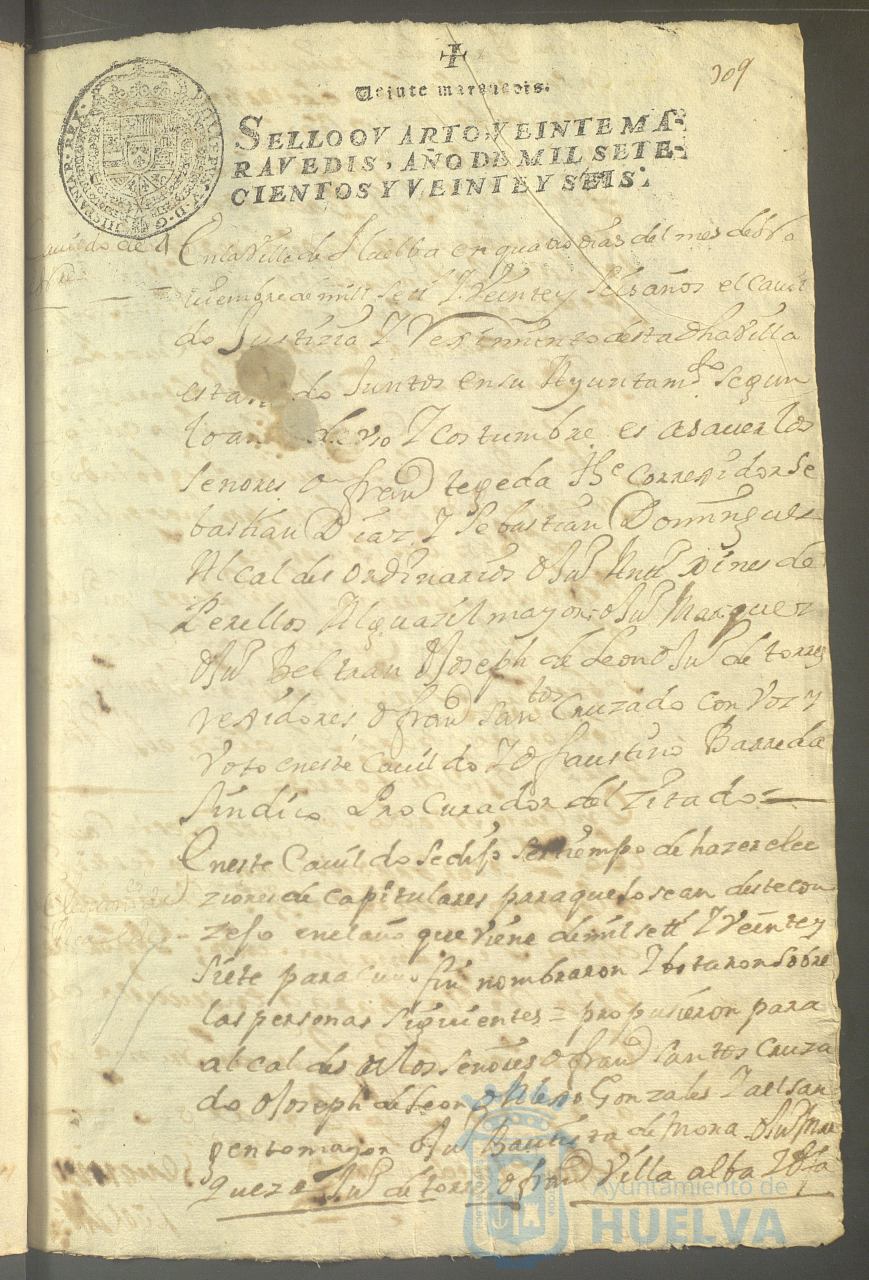 309
Veinte maravedis.
SELLO QVARTO, VEINTE MA-
RAVEDIS, AÑO DE MIL SETE-
CIENTOS Y VEINTE Y SEIS.
PHILIPPUS V D.G. HISPANIAR. REX
Cauildo de 4
En la Villa de Huelba en quatro dias del mes de No
uiembre de mill sett.s Y Veinte y Seis años el Cauil
do Justizia Y Reximiento desta dha Villa
estando Juntos en su Ayuntam.to segun
lo an de uso Y costumbre es asauer los
señores Dn fran.co tegeda the Correxidor Se
bastian Diaz Y Sebastian Dominguez
Alcaldes ordinarios D Ju.o Ant.o Xines de
Perellos Alguazil mayor D Ju.o Marquez
D Ju.o Beltran D Joseph de Leon D Ju.o de torres
rexidores D fran.co Santos Cruzado con Voz y
Voto en este Cauildo Y D faustino Barreda
Sindico Procurador del Zitado =
En este Cauildo se dijo ser tiempo de hazer elec
ziones de capitulares para que lo sean deste con
zejo en el año que Viene de mil sett.s Y Veinte y
siete para cuio fin nombraron Y botaron sobre
las personas siguientes = propusieron para
alcaldes a los señores D fran.co Santos Cruza
do D Joseph de Leon D Alexo Gonzales Y al sar
gento mayor D Ju.o Bautista de Mora D Ju.o Mar
quez D Ju.o de torres D fran.co Villa alba
Ayuntamiento de
HUELVA